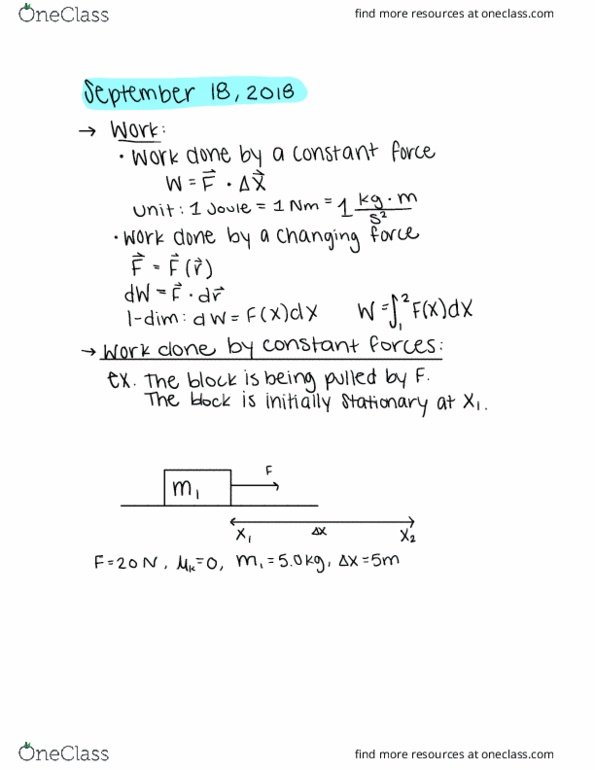 OneClass find more resources at oneclass.com
September 18, 2018
→ Work:
• Work done by a constant force
W = F⃗ · ΔX⃗
Unit: 1 Joule = 1 Nm = 1 kg·m/s²
• Work done by a changing force
F⃗ = F⃗(r⃗)
dW = F⃗ · dr⃗
1-dim: dW = F(x)dx W = ∫₁² F(x)dx
→ Work done by constant forces:
ex. The block is being pulled by F.
The block is initially stationary at X₁.
F
m₁
X₁ ΔX X₂
F = 20 N, μₖ = 0, m₁ = 5.0 kg, ΔX = 5m
OneClass find more resources at oneclass.com